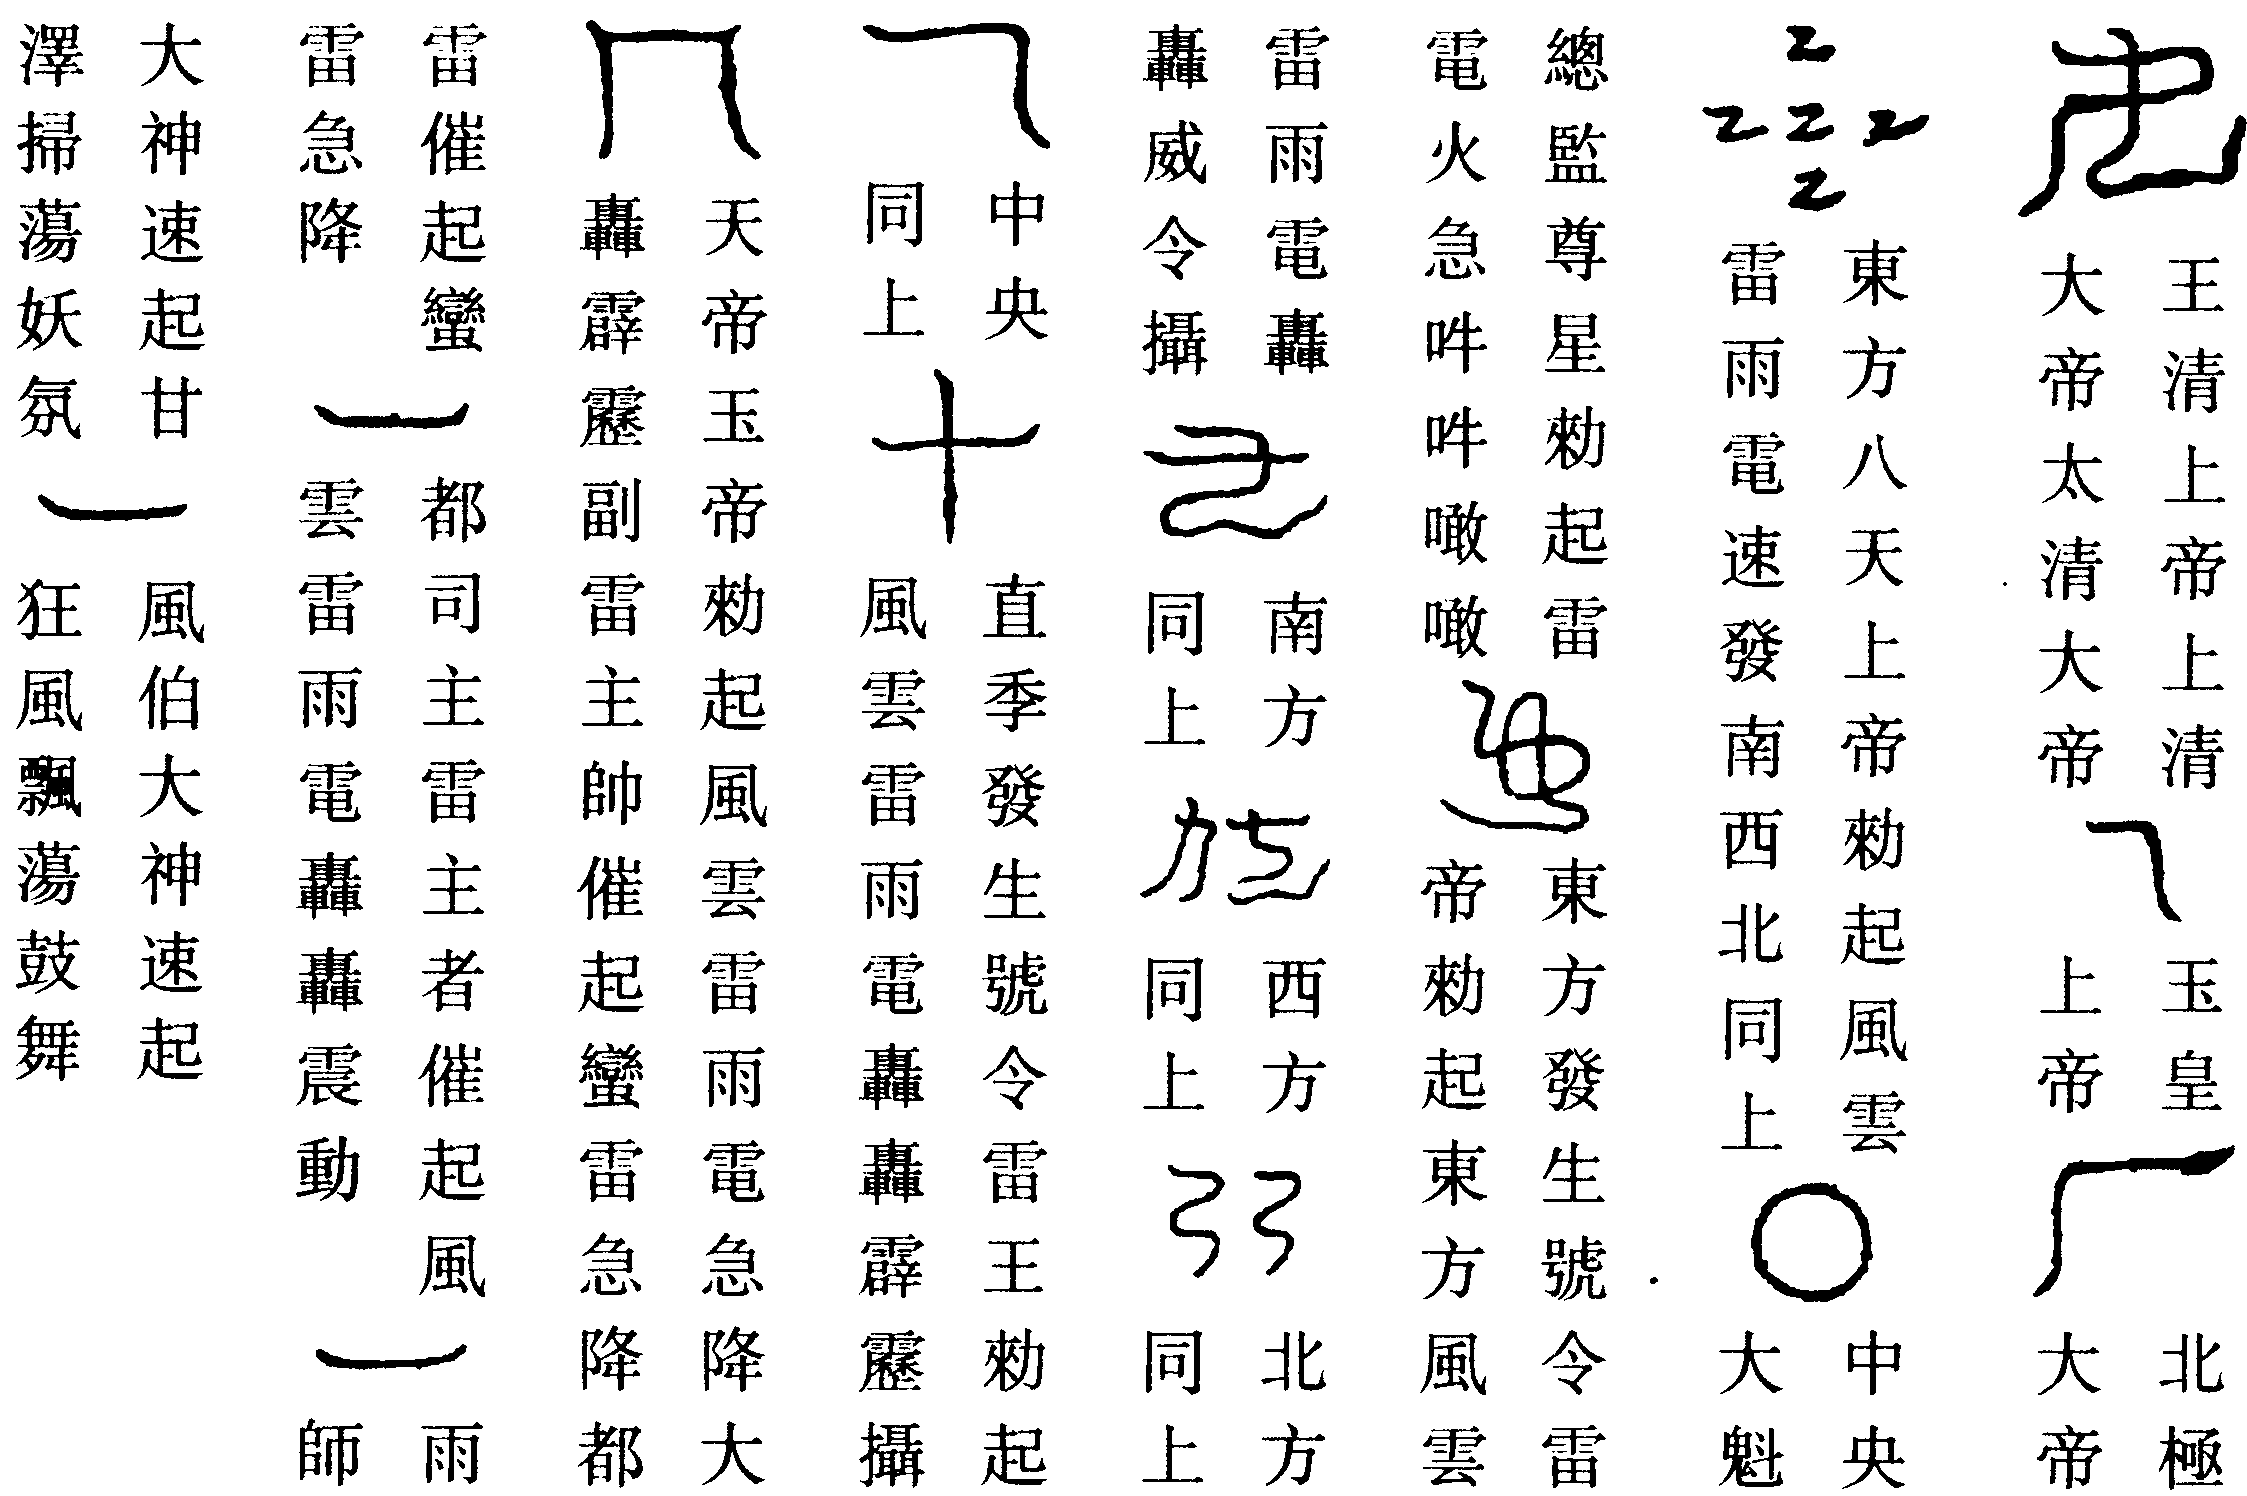 王清上帝上清
大帝太清大帝
玉皇
上帝
北極
大帝
東方八天上帝勑起風雲
雷雨電速發南西北同上
中央
大魁
總監尊星勑起雷
電火急吽吽噉噉
東方發生號令雷
帝勑起東方風雲
雷雨電轟
轟威令攝
南方
同上
西方
同上
北方
同上
中央
同上
直季發生號令雷王勑起
風雲雷雨電轟轟霹靂攝
天帝玉帝勑起風雲雷雨電急降大
轟霹靂副雷主帥催起蠻雷急降都
雷催起蠻
雷急降
都司主雷主者催起風
雲雷雨電轟轟震動
雨
師
大神速起甘
澤掃蕩妖氛
風伯大神速起
狂風飄蕩鼓舞